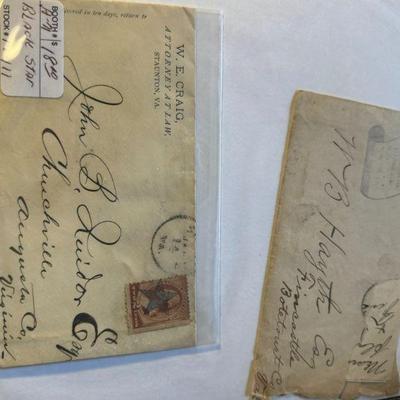 BOOTH #/$
1888
Black Star
STOCK #
111
ed in ten days, return to
W. E. CRAIG,
ATTORNEY AT LAW,
STAUNTON, VA.
John B.
Esq
Churchville
Augusta Co
Virginia
W B Hayth Esq
Fincastle
Botetourt Co